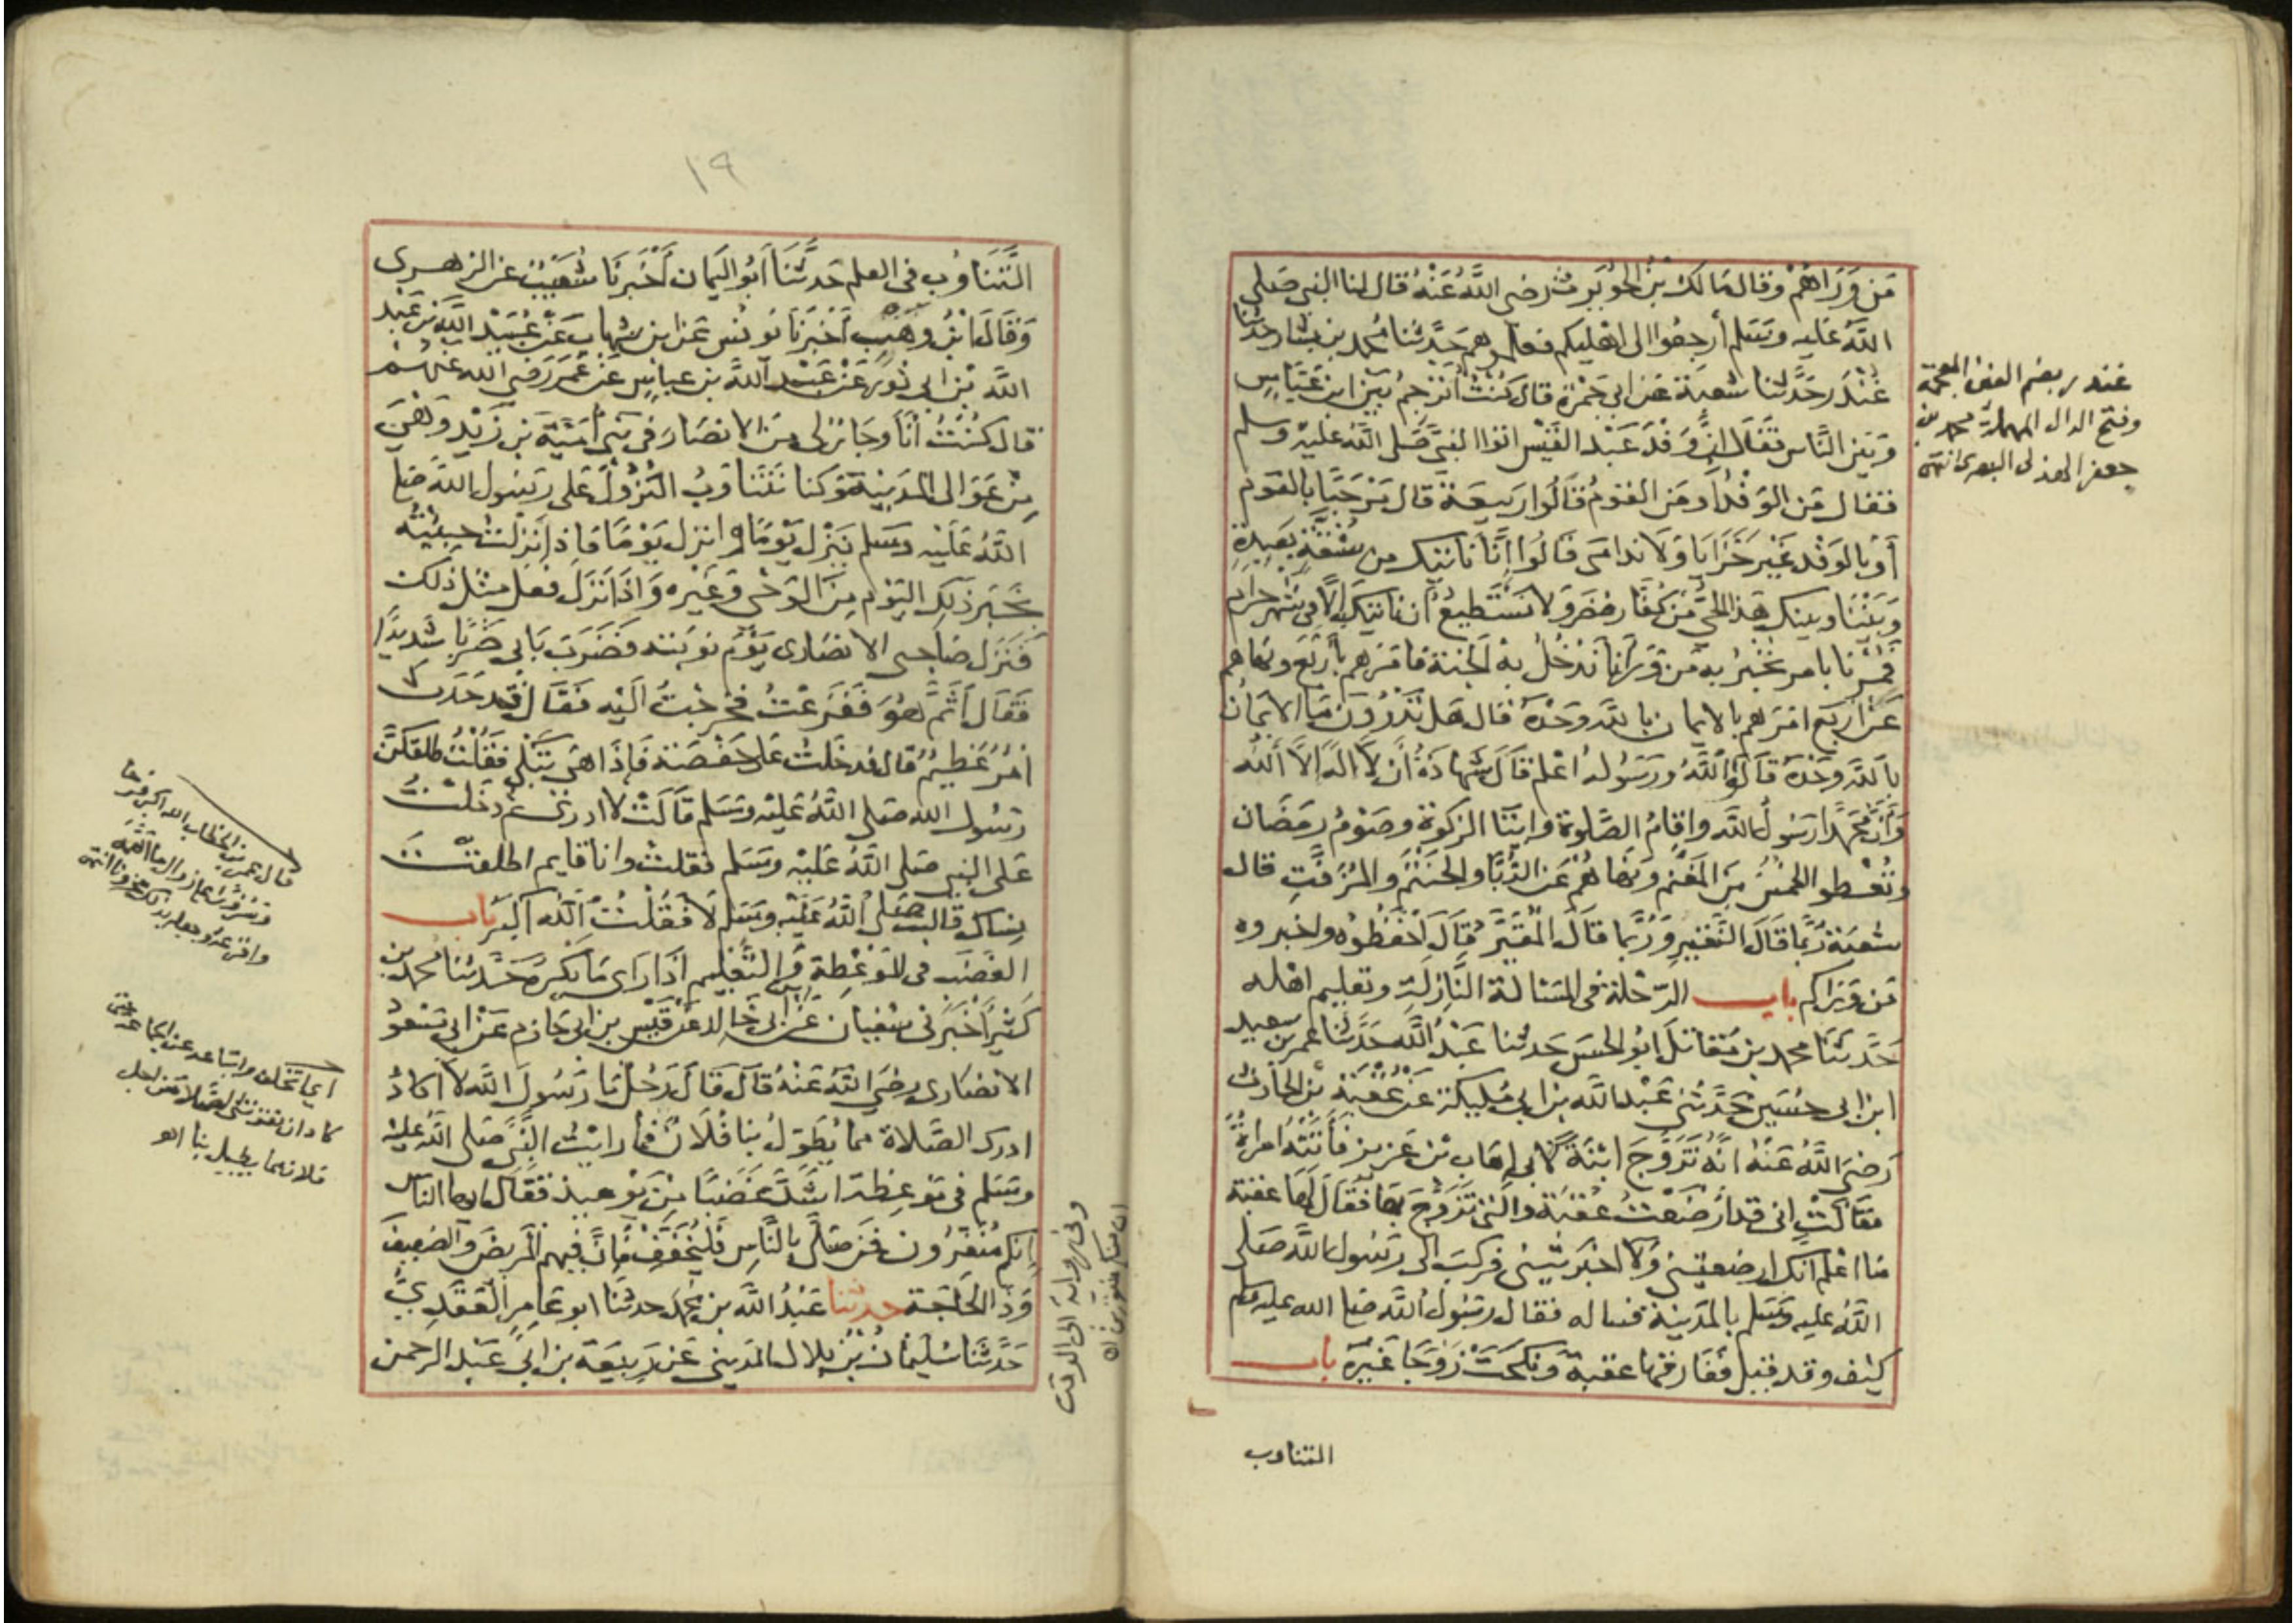 من وراهم وقال مالك بن الحويرث رضي الله عنه قال لنا النبي صلى
الله عليه وسلم أرجعوا الى اهليكم فعلموهم حدثنا محمد بن بشار حدثنا
غندر حدثنا شعبة عن ابي جمرة قال كنت أترجم بين ابن عباس
وبين الناس فقال ان وفد عبد القيس اتوا النبي صلى الله عليه وسلم
فقال من الوفد أو من القوم قالوا ربيعة قال مرحبا بالقوم
أو بالوفد غير خزايا ولا ندامى قالوا إنا ناتيك من شقة بعيدة
وبيننا وبينك هذا الحي من كفار مضر ولا نستطيع أن ناتيك إلا في شهر حرام
فمرنا بامر نخبر به من وراءنا ندخل به الجنة فامرهم بأربع ونهاهم
عن اربع امرهم بالايمان بالله وحده قال هل تدرون ما الايمان
بالله وحده قالوا الله ورسوله اعلم قال شهادة أن لا اله إلا الله
وأن محمدا رسول الله واقام الصلوة وايتا الزكوة وصوم رمضان
وتعطوا الخمس من المغنم ونهاهم عن الدبا والحنتم والمزفت قال
شعبة ربما قال النقير وربما قال المقير قال احفظوه واخبروه
من وراكم باب الرحلة في المسالة النازلة وتعليم اهله
حدثنا محمد بن مقاتل ابو الحسن حدثنا عبد الله حدثنا عمر بن سعيد
ابن ابي حسين حدثني عبد الله بن ابي مليكة عن عقبة بن الحارث
رضي الله عنه انه تزوج ابنة لابي إهاب بن عزيز فأتته امراة
فقالت اني قد ارضعت عقبة والتي تزوج بها فقال لها عقبة
ما اعلم انك ارضعتيني ولا اخبرتيني فركب الى رسول الله صلى
الله عليه وسلم بالمدينة فساله فقال رسول الله صلى الله عليه وسلم
كيف وقد قيل ففارقها عقبة ونكحت زوجا غيره باب
التناوب
غندر بضم الغين المعجمة
وفتح الدال المهملة محمد بن
جعفر الهذلي البصري انتهى
١٩
التناوب في العلم حدثنا أبو اليمان أخبرنا شعيب عن الزهري
وقال ابن وهب أخبرنا يونس عن ابن شهاب عن عبيد الله بن عبد
الله بن ابي ثور عن عبد الله بن عباس عن عمر رضي الله عنهم
قال كنت أنا وجار لي من الانصار في بني أمية بن زيد وهي
من عوالي المدينة وكنا نتناوب النزول على رسول الله صلى
الله عليه وسلم ينزل يوما وانزل يوما فاذا نزلت جيئته
بخبر ذلك اليوم من الوحي وغيره واذا نزل فعل مثل ذلك
فنزل صاحبي الانصاري يوم نوبته فضرب بابي ضربا شديدا
فقال أثم هو ففزعت فخرجت اليه فقال قد حدث
امر عظيم قال فدخلت على حفصة فإذا هي تبكي فقلت طلقكن
رسول الله صلى الله عليه وسلم قالت لا ادري ثم دخلت
على النبي صلى الله عليه وسلم فقلت وانا قايم اطلقت
نساك قال صلى الله عليه وسلم لا فقلت الله اكبر باب
الغضب في الموعظة والتعليم اذا راى ما يكره حدثنا محمد بن
كثير أخبرني سفيان عن ابن ابي خالد عن قيس بن ابي حازم عن ابي مسعود
الانصاري رضي الله عنه قال قال رجل يا رسول الله لا اكاد
ادرك الصلاة مما يطول بنا فلان فما رايت النبي صلى الله عليه
وسلم في موعظة اشد غضبا من يوميذ فقال ايها الناس
إنكم منفرون فمن صلى بالناس فليخفف فإن فيهم المريض والضعيف
وذا الحاجة حدثنا عبد الله بن محمد حدثنا ابو عامر العقدي
حدثنا سليمان بن بلال المديني عن ربيعة بن ابي عبد الرحمن
قال عمر بن الخطاب الله اكبر
وفي رواية ابي الوقت